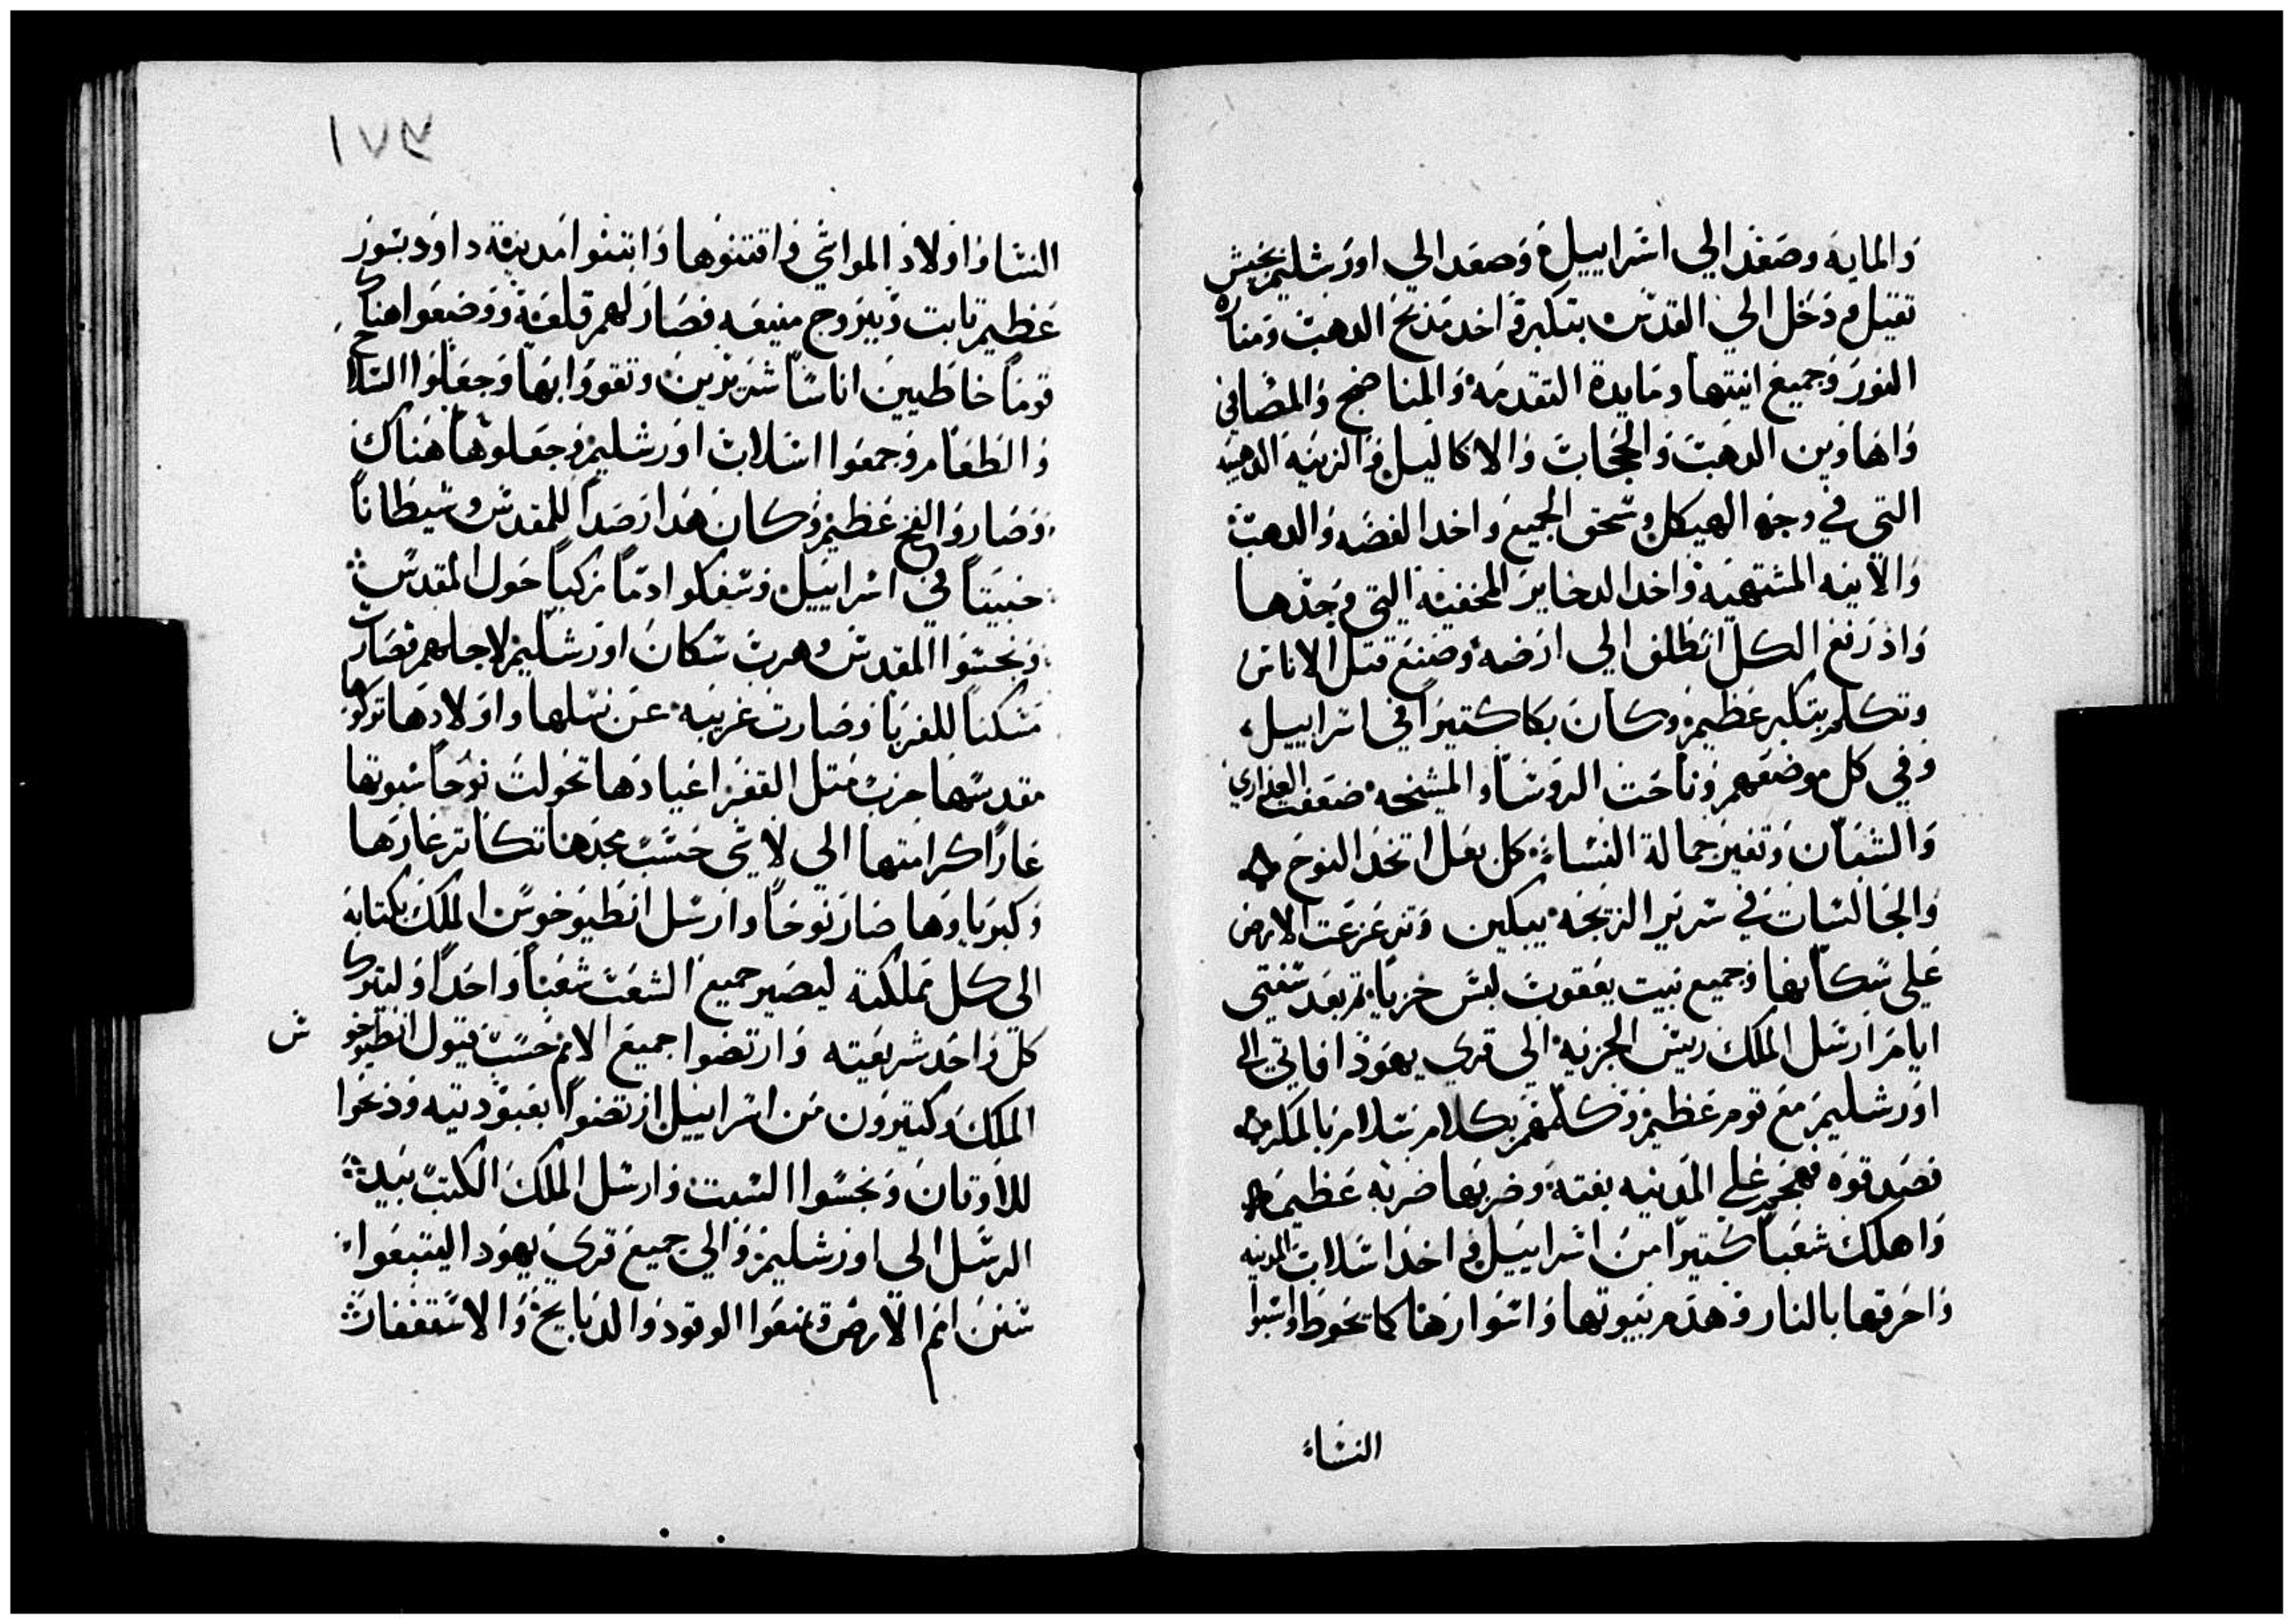 والمايه وصعد الي اسراييل وصعد الي اورشليم بجيش
تقيل ودخل الي القدس بتكبر واخد مذبح الدهب ومناره
النور وجميع انيتها ومايدة التقدمه والمناضح والمصافي
واهاوين الدهب والحجاب والاكاليل والزينه الدهبيه
التي في وجه الهيكل وسحق الجميع واخد الفضه والدهب
والآنيه المشتهيه واخد الدخاير المخفيه التي وجدها
واذ رفع الكل انطلق الي ارضه وصنع قتل الاناس
وتكلم بتكبر عظيم وكان بكا كتيراً في اسراييل
وفي كل موضعهم وناحت الروسا والمشيخه ضعفت العذاري
والشبان وتغير جمالة النساء كل بعل اتخد النوح
والجالسات في سرير الزيجه يبكين وتزعزعت الارض
علي سكانها وجميع بيت يعقوب لبس خزيا ثم بعد سنتي
ايام ارسل الملك ريس الجزيه الي قري يهوذا فاتي الي
اورشليم مع قوم عظيم وكلمهم بكلام سلام بالمكر
فصدقوه فهجم علي المدينه بغتة وضربها ضربه عظيمه
واهلك شعباً كتيراً من اسراييل واخد اسلاب المدينه
واحرقها بالنار وهدم بيوتها واسوارها كما تحوط واسبوا
النساء
١٧٣
النسا واولاد المواشي واقتنوها وابتنوا مدينة داود بسور
عظيم تابت وببروج منيعه فصار لهم قلعة ووضعوا هناك
قوماً خاطيين اناساً شريرين وتقووا بها وجعلوا السلاح
والطعام وجمعوا اسلاب اورشليم وجعلوها هناك
وصاروا لفخ عظيم وكان هذا رصداً للمقدس وشيطاناً
خبيتاً في اسراييل وسفكوا دماً زكياً حول المقدس
ونجسوا المقدس وهرب سكان اورشليم لاجلهم فصارت
مسكناً للغربا وصارت غريبه عن نسلها واولادها تركوها
مقدسها خرب متل القفر اعيادها تحولت نوحاً سبوتها
عاراً كرامتها الي لاشي حسب مجدها تكاتر عارها
وكبرياوها صار نوحاً وارسل انطيوخوس الملك بكتابه
الي كل مملكته ليصير جميع الشعب شعباً واحداً وليترك
كل واحد شريعته وارتضوا جميع الامم حسب قبول انطيوخو
س
الملك وكتيرون من اسراييل ارتضوا بعبوديته وذبحوا
للاوتان ونجسوا السبت وارسل الملك الكتب بيد
الرسل الي اورشليم والي جميع قري يهودا ليتبعوا
سنن امم الارض ويمنعوا الوقود والدبايح والاستغفارات